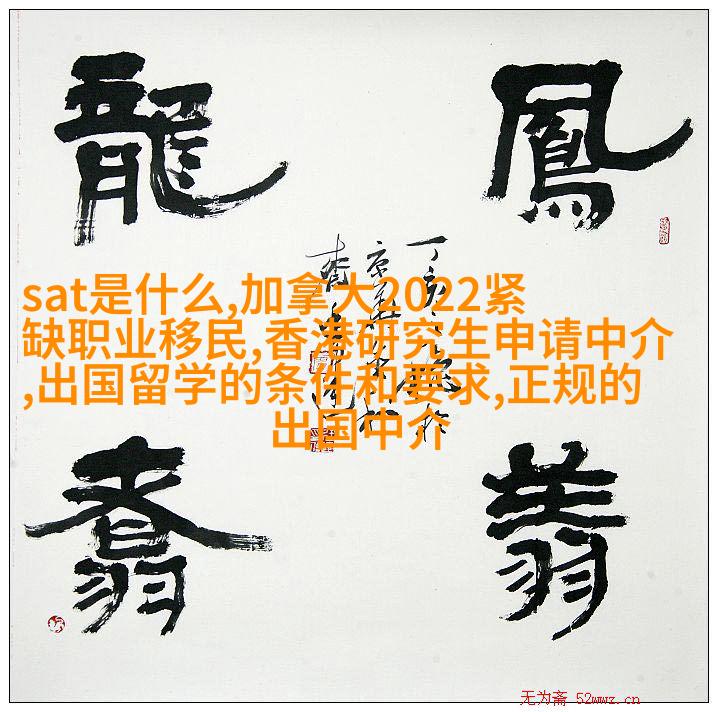 龍 鳳
丁亥
sat是什么,加拿大2022紧
缺职业移民,香港研究生申请中介
,出国留学的条件和要求,正规的
出国中介
翥 翔
无为斋 52wwz.cn